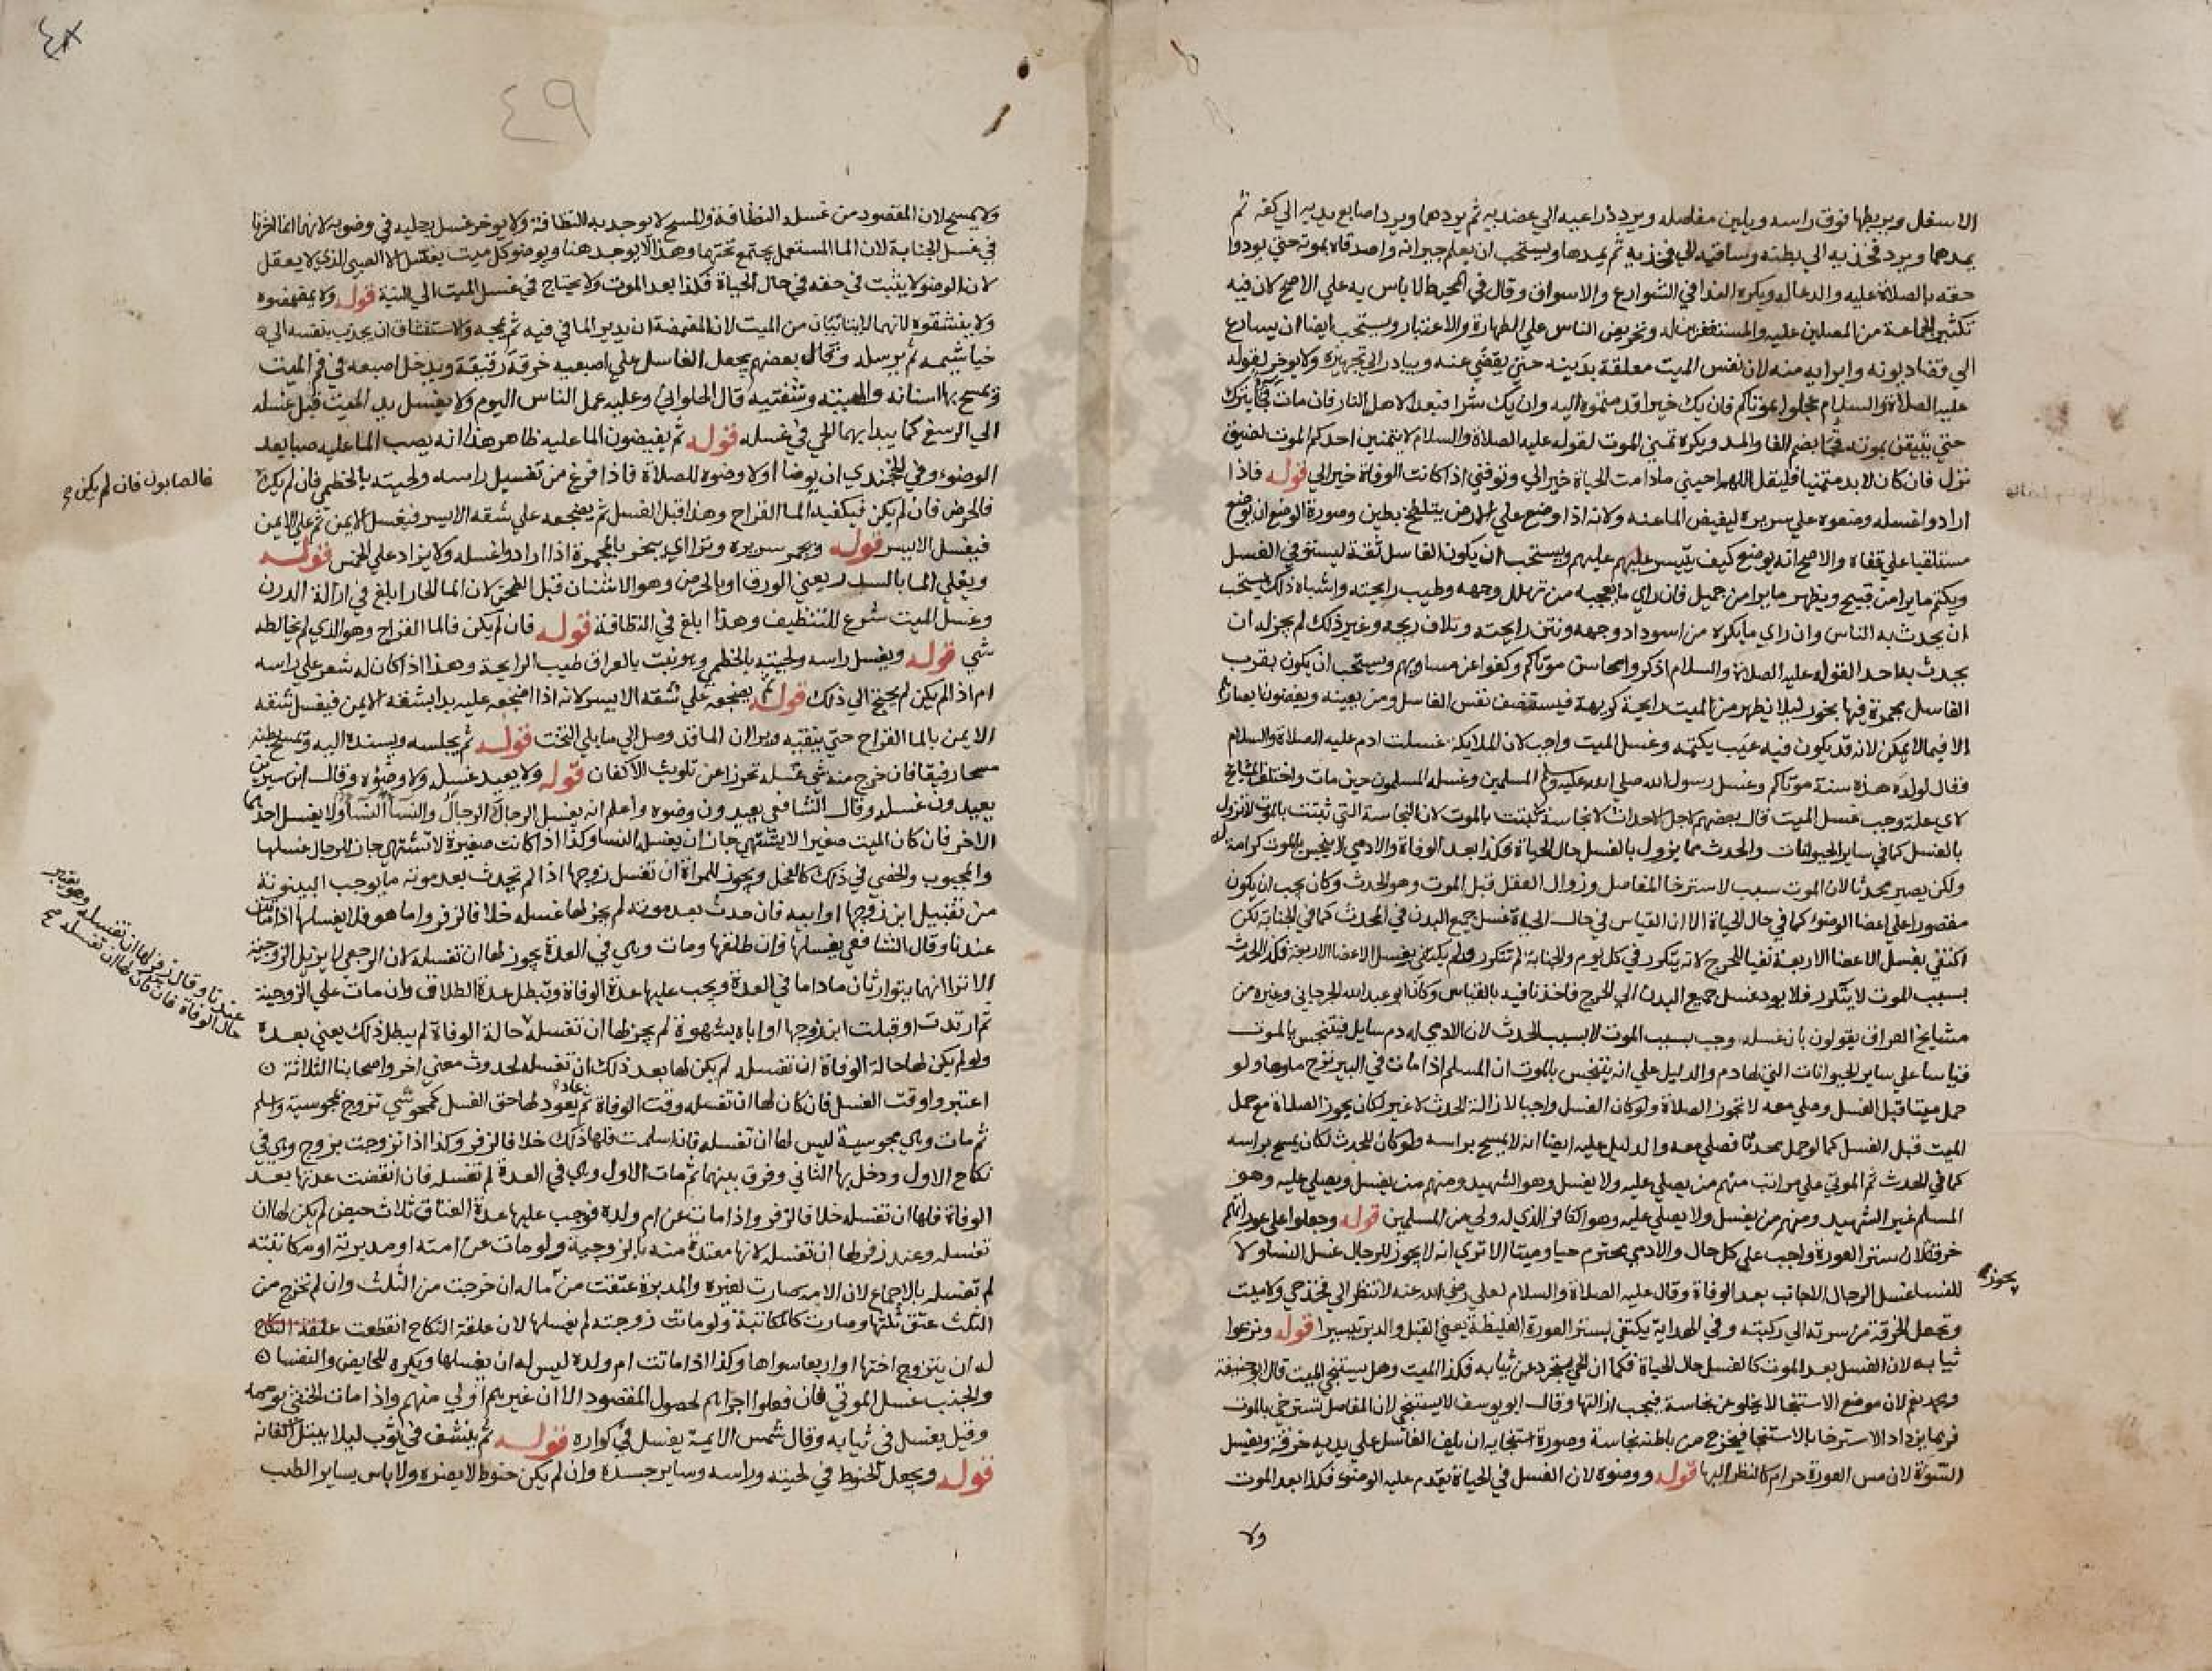 الاسفل ويربطها فوق راسه ويلين مفاصله ويرد ذراعيه الي عضديه ثم يردهما ويرد اصابع يديه الي كفه ثم
يمدهما ويرد فخذيه الي بطنه وساقيه الي فخذيه ثم يمدها ويستحب ان يعلم جيرانه واصدقاه بموته حتي يودوا
حقه بالصلاة عليه والدعا له ويكره الندا في الشوارع والاسواق وقال في المحيط لا باس به علي الاصح لان فيه
تكثير الجماعة من المصلين عليه والمستغفرين له وتحريض الناس علي الطهارة والاعتبار ويستحب ايضا ان يسارع
الي قضا ديونه وابرايه منه لان نفس الميت معلقة بدينه حتي يقضي عنه ويبادر الي تجهيزه ولا يوخر لقوله
عليه الصلاة والسلام عجلوا بموتاكم فان يك خيرا قدمتموه اليه وان يك شرا فبعدا لاهل النار فان مات فجأة يترك
حتي يتيقن بموته فجا بضم الفا والمد ويكره تمني الموت لقوله عليه الصلاة والسلام لا يتمنين احدكم الموت لضيق
نزل فان كان لا بد متمنيا فليقل اللهم احيني مادامت الحياة خيرا لي وتوفني اذا كانت الوفاة خيرا لي قوله فاذا
ارادوا غسله وضعوه علي سريره ليفيض الما عنه ولانه اذا وضع علي الارض يتلطخ بطين وصورة الوضع ان يوضع
مستلقيا علي قفاه والاصح انه يوضع كيف يتيسر عليهم ويستحب ان يكون الغاسل ثقة ليستوفي الغسل
ويكتم ما يرا من قبيح ويظهر ما يرا من جميل فان راي ما يعجبه من تهلل وجهه وطيب رايحته واشباه ذلك يستحب
ان يحدث به الناس وان راي ما يكره من اسوداد وجهه ونتن رايحته وغير ذلك لم يجز له ان
يحدث به احد القوله عليه الصلاة والسلام اذكروا محاسن موتاكم وكفوا عن مساويهم ويستحب ان يكون بقرب
الغاسل مجمرة فيها بخور ليلا تظهر من الميت رايحة كريهة نفس الغاسل ومن يعينه ويغضون ابصارهم
الا فيما لا يمكن لانه قد يكون فيه عيب يكتمه وغسل الميت واجب لان الملايكة غسلت ادم عليه الصلاة والسلام
وقال لولده هذه سنة موتاكم وغسل رسول الله صلي الله عليه وسلم المسلمين وغسله المسلمون حين مات واختلف المشايخ
لاي علة وجب غسل الميت قال بعضهم لاجل الاحداث لا نجاسة تثبت بالموت لان النجاسة التي تثبت بالموت لا تزول
بالغسل كما في ساير الحيوانات والحدث مما يزول بالغسل حال الحياة فكذا بعد الوفاة والادمي لا ينجس بالموت كرامة له
ولكن يصير محدثا لان الموت سبب لاسترخا المفاصل وزوال العقل قبل الموت وهو الحدث وكان يجب ان يكون
مقصورا علي اعضا الوضوء كما في حال الحياة الا ان القياس في حال الحياة غسل جميع البدن في الحدث كما في الجنابة لكن
اكتفي بغسل الاعضا الاربعة نفيا للحرج لانه يتكرر في كل يوم والجنابة لم تتكرر فلم يكتف بغسل الاعضا الاربعة فكذا الحدث
بسبب الموت لا يتكرر فلا يود غسل جميع البدن الي الحرج فاخذنا فيه بالقياس وكان ابو عبدالله الجرجاني وغيره من
مشايخ العراق يقولون بان غسله وجب بسبب الموت لا بسبب الحدث لان الادمي له دم سايل فيتنجس بالموت
قياسا علي ساير الحيوانات التي لها دم والدليل علي انه يتنجس بالموت ان المسلم اذا مات في البير نزح ماوها ولو
حمل ميتا قبل الغسل وصلي معه لا تجوز الصلاة ولو كان الغسل واجبا لازالة الحدث لا غير لكان يجوز الصلاة مع حمل
الميت قبل الغسل كما لو حمل محدثا فصلي معه والدليل عليه ايضا انه لا يمسح براسه ولو كان للحدث لكان يمسح براسه
كما في الحدث ثم الموتي علي مراتب منهم من يصلي عليه ولا يغسل وهو الشهيد ومنهم من يغسل ويصلي عليه وهو
المسلم غير الشهيد ومنهم من يغسل ولا يصلي عليه وهو الكافر الذي له ولي من المسلمين قوله وجعلوا علي عوراتهم
خرقة لان ستر العورة واجب علي كل حال والادمي محترم حيا وميتا الا تري انه لا يجوز للرجال غسل النسا ولا
يجوز
للنسا غسل الرجال الاجانب بعد الوفاة وقال عليه الصلاة والسلام لعلي رضي الله عنه لا تنظر الي فخذ حي ولا ميت
وتجعل الخرقة من سرته الي ركبته وفي الهداية يكتفي بستر العورة الغليظة يعني القبل والدبر تيسيرا قوله ونزعوا
ثيابه لان الغسل بعد الموت كالغسل حال الحياة فكما ان الحي يتجرد عن ثيابه فكذا الميت وهل يستنجي الميت قال ابو حنيفة
ومحمد نعم لان موضع الاستنجا لا يخلو عن نجاسة فيجب ازالتها وقال ابو يوسف لا يستنجي لان المفاصل تسترخي بالموت
فربما يزداد الاسترخا بالاستنجا فيخرج من باطنه نجاسة وصورة استنجايه ان يلف الغاسل علي يديه خرقة ويغسل
السوءة لان مس العورة حرام كالنظر اليها قوله ووضوه لان الغسل في الحياة يقدم عليه الوضوء فكذا بعد الموت
ولا
٤٩
ولا يمسح لان المقصود من غسله النظافة والمسح لا يوجد به النظافة ولا يوخر غسل رجليه في وضويه لانهما انما اخرتا
في غسل الجنابة لان الما المستعمل يجتمع تحتهما وهذا لا يوجد هنا ويوضو كل ميت يغسل الا الصبي الذي لا يعقل
لان الوضو لا يثبت في حقه في حال الحياة فكذا بعد الموت ولا يحتاج في غسل الميت الي النية قوله ولا يمضمضوه
ولا ينشقوه لانهما لا يتاتيان من الميت لان المضمضة ان يدير الما في فيه ثم يمجه والاستنشاق ان يجذب بنفسه الي
خياشيمه ثم يرسله وقال بعضهم يجعل الغاسل علي اصبعيه خرقة رقيقة ويدخل اصبعه في فم الميت
ويمسح بها اسنانه ولهيته وشفتيه قال الحلواني وعليه عمل الناس اليوم ولا يغسل يد الميت قبل غسله
الي الرسغ كما يبدا بهما الحي في غسله قوله ثم يفيضون الما عليه ظاهر هذا انه يصب الما عليه صبا بعد
الوضوء وفي الخجندي ان يوضا اولا وضوه للصلاة فاذا فرغ من تغسيل راسه ولحيته بالخطمي فان لم يكن
فالصابون فان لم يكن
فالحرض فان لم يكن فيكفيه الما القراح وهذا قبل الغسل ثم يضجعه علي شقه الايسر فيغسل الايمن ثم علي الايمن
فيغسل الايسر قوله ويجمر سريره وترا اي يبخر بالمجمرة اذا ارادوا غسله ولا يزاد علي الخمس قوله
ويغلي الما بالسدر يعني الورق او بالحرض وهو الاشنان قبل الطحن لان الما الحار ابلغ في ازالة الدرن
وغسل الميت شرع للتنظيف وهذا ابلغ في النظافة قوله فان لم يكن فالما القراح وهو الذي لم يخالطه
شي قوله ويغسل راسه ولحيته بالخطمي وهو نبت بالعراق طيب الرايحة وهذا اذا كان له شعر علي راسه
ام اذ لم يكن لم يحتج الي ذلك قوله ثم يضجعه علي شقه الايسر لانه اذا اضجعه عليه بدا بشقه الايمن فيغسل شقه
الايمن بالما القراح حتي ينقيه ويرا ان الما قد وصل الي ما يلي التخت قوله ثم يجلسه ويسنده اليه ويمسح بطنه
مسحا رفيقا فان خرج منه شي غسله تحرزا عن تلويث الاكفان قوله ولا يعيد غسله ولا وضوه وقال ابن سيرين
يعيدون غسله وقال الشافعي يعيدون وضوه واعلم انه يغسل الرجال الرجال والنسا النسا ولا يغسل احدهما
الاخر فان كان الميت صغيرا لا يشتهي جاز ان يغسله النسا وكذا اذا كانت صغيرة لا تشتهي جاز للرجال غسلها
والمجبوب والخصي في ذلك كالفحل ويجوز للمراة ان تغسل زوجها اذا لم يحدث بعد موته ما يوجب البينونة
من تقبيل ابن زوجها او ابيه فان حدث بعد موته لم يجز لها غسله خلافا لزفر واما هو فلا يغسلها اذا ماتت
عندنا وقال الشافعي يغسلها وان طلقها ومات وهي في العدة يجوز لها ان تغسله لان الرجعي لا يزيل الزوجية
الا ترا انهما يتوارثان ماداما في العدة ويجب عليها عدة الوفاة وتبطل عدة الطلاق وان مات علي الزوجية
ثم ارتدت او قبلت ابن زوجها او اباه بشهوة لم يجز لها ان تغسله حالة الوفاة لم يبطل ذلك يعني بعده
عندنا وقال زفر لها ان تغسله وهو يعتبر
حال الوفاة فان كان لها ان تغسله صح
ولو لم يكن لها حالة الوفاة ان تغسله لم يكن لها بعد ذلك ان تغسله لحدوث معني اخر واصحابنا الثلاثة
اعتبروا وقت الغسل فان كان لها ان تغسله وقت الوفاة ثم يعود لها حق الغسل كمجوسي تزوج مجوسية واسلم
ثم مات وهي مجوسية ليس لها ان تغسله فان اسلمت فلها ذلك خلافا لزفر وكذا اذا تزوجت بزوج وهي في
نكاح الاول ودخل بها الثاني وفرق بينهما ثم مات الاول وهي في العدة لم تغسله فان انقضت عدتها بعد
الوفاة فلها ان تغسله خلافا لزفر واذا مات عن ام ولده فوجب عليها عدة العتاق ثلاث حيض لم يكن لها ان
تغسله وعند زفر لها ان تغسله لانها معتدة منه بالزوجية ولو مات عن امته او مدبرته او مكاتبته
لم تغسله بالاجماع لان الامة صارت لغيره والمدبرة عتقت من ماله ان خرجت من الثلث وان لم تخرج من
الثلث عتق ثلثها وصارت كالمكاتبة ولو ماتت زوجته لم يغسلها لان علقة النكاح انقطعت
له ان يتزوج اختها او اربعا سواها وكذا اذا ماتت ام ولده ليس له ان يغسلها ويكره للحايض والنفسا
والجنب غسل الموتي فان فعلوا اجزاهم لحصول المقصود الا ان غيرهم اولي منهم واذا مات الخنثي يوممه
وقيل يغسل في ثيابه وقال شمس الايمة يغسل في كواره قوله ثم ينشف في ثوب ليلا يبتل اكفانه
قوله ويجعل الحنوط في لحيته وراسه وساير جسده وان لم يكن حنوط لا يضره ولا باس بساير الطيب